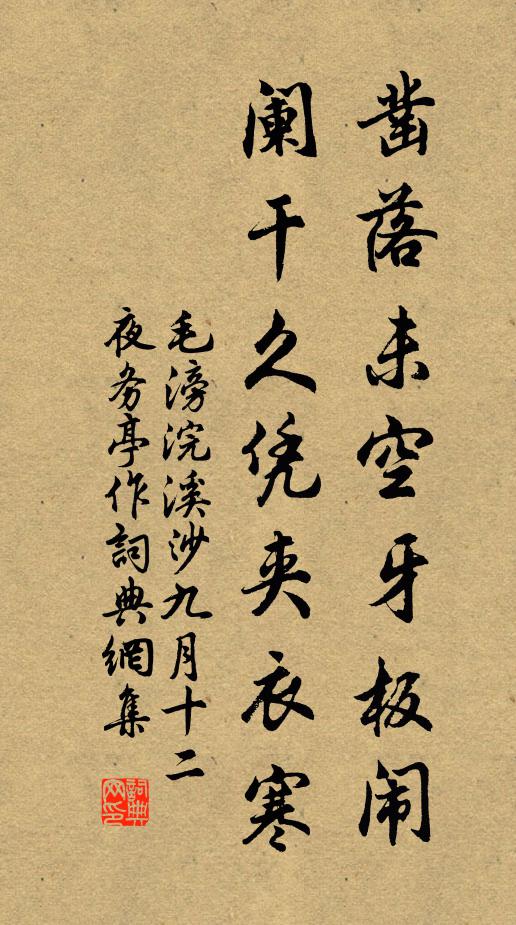 凿落未空牙板闹
阑干久凭夹衣寒
毛滂浣溪沙九月十二
夜务亭作詞典網集
詞典网印